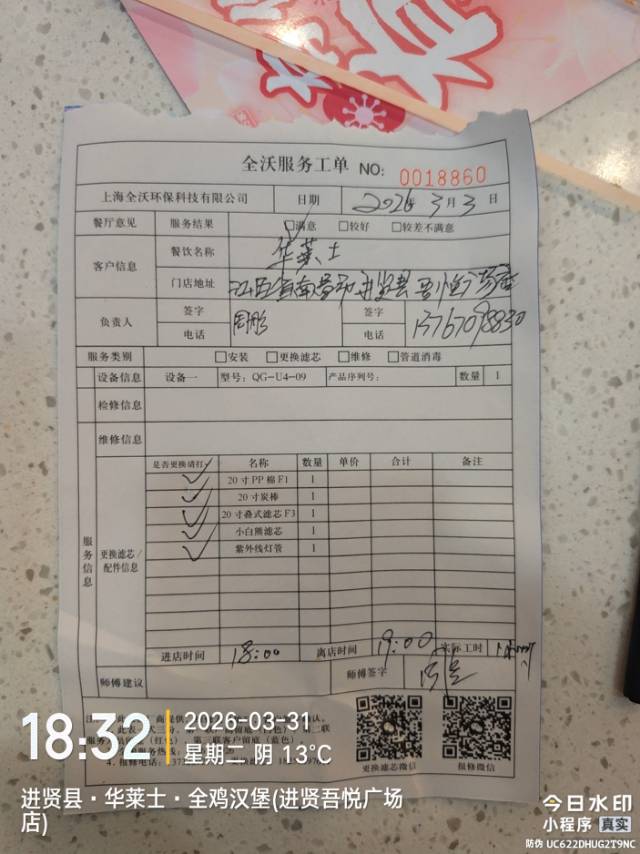 全沃服务工单 NO: 0018860
上海全沃环保科技有限公司 日期 2026 3月3 日
餐厅意见 服务结果 满意 较好 较差不满意
客户信息 餐饮名称 华莱士
门店地址 江西省南昌市进贤县吾悦广场店
负责人 签字 签字
电话 电话 13767098830
服务类别 安装 更换滤芯 维修 管道消毒
设备信息 设备一 型号: QG-U4-09 产品序列号: 数量 1
检修信息
维修信息
服务信息
更换滤芯/配件信息
是否更换请打√ 名称 数量 单价 合计 备注
✓ 20寸PP棉F1 1
✓ 20寸炭棒 1
✓ 20寸叠式滤芯F3 1
✓ 小白熊滤芯 1
✓ 紫外线灯管 1
进店时间 18:00 离店时间 19:00 实际工时
师傅建议 师傅签字
更换滤芯微信 报修微信
18:32
2026-03-31
星期二 阴 13°C
进贤县·华莱士·全鸡汉堡(进贤吾悦广场
店)
今日水印
小程序 真实
防伪 UC622DHUG2T9NC